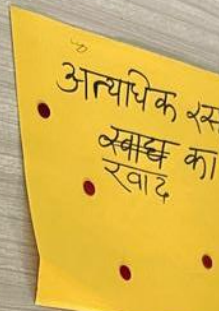 अत्यधिक रस
स्वाद्य का
स्वाद